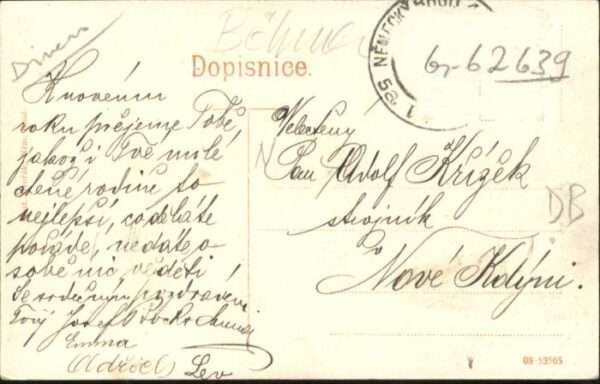 Diverse
Dopisnice.
NĚMECKÝ BROD
6-62639
K novému
roku přejeme Tobě,
jakož i Tvé milé
ctěné rodině to
nejlepší, co děláte
pořáde, nedáte o
sobě nic věděti!
Se srdečným pozdravem
Tvůj Josef
Emma
Lev
Velectěný
Pan Adolf Křížek
strojník
v
Nové Kdýni.
DB
08 53565